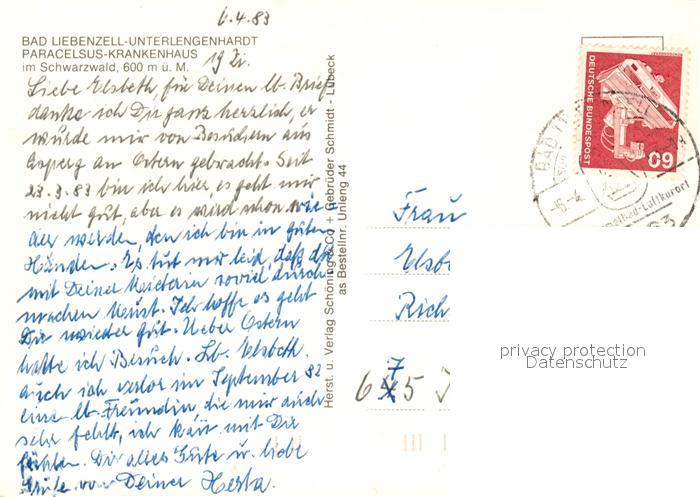 6.4.83
BAD LIEBENZELL-UNTERLENGENHARDT
PARACELSUS-KRANKENHAUS
im Schwarzwald, 600 m ü. M.
Liebe Elsbeth für Deinen lb. Brief
danke ich Dir ganz herzlich, er
wurde mir von Besuchern aus
Asperg an Ostern gebracht. Seit
23.3.83 bin ich hier es geht mir
nicht gut, aber es wird schon wie
der werden, den ich bin in guten
Händen. Es tut mir leid, daß du
mit Deiner soviel durch
machen mußt. Ich hoffe es geht
Dir wieder gut. Ueber Ostern
hatte ich Besuch. Lb. Elsbeth
auch ich verlor im September 82
eine lb. Freundin, die mir auch
sehr fehlt, ich kan mit Dir
fühlen. Dir alles Gute u. liebe
Grüße von Deiner Herta.
Herst. u. Verlag Schöning & Co + Gebrüder Schmidt - Lübeck
as Bestellnr. Unleng 44
DEUTSCHE BUNDESPOST
60
BAD
-6.-4
Luftkurort
Frau
Elsb
Rich
privacy protection
Datenschutz